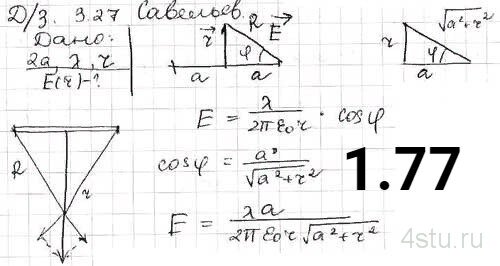 Д/З. 3.27 Савельев.
Дано:
2a, λ, r
E(r)-?
r R E
φ
a a
√a²+r²
r φ
a
E = λ / 2πε₀r · cosφ
R r
cosφ = a / √a²+r²
1.77
E = λa / 2πε₀r√a²+r²
4stu.ru